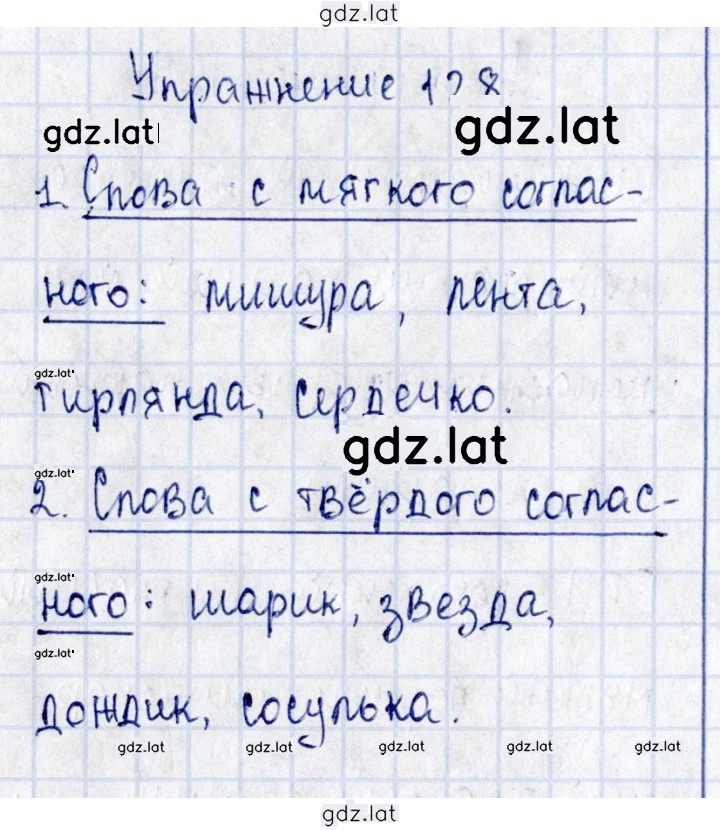 gdz.lat
Упражнение 128
gdz.lat gdz.lat
1. Слова с мягкого соглас-
ного: мишура, лента,
gdz.lat
гирлянда, сердечко.
gdz.lat
gdz.lat
2. Слова с твёрдого соглас-
gdz.lat
ного: шарик, звезда,
gdz.lat
дождик, сосулька.
gdz.lat gdz.lat gdz.lat gdz.lat gdz.lat
gdz.lat